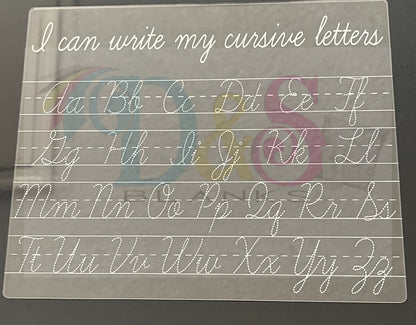 I can write my cursive letters
Aa Bb Cc Dd Ee Ff
Gg Hh Ii Jj Kk Ll
Mm Nn Oo Pp Qq Rr Ss
Tt Uu Vv Ww Xx Yy Zz
D&S
BLANKS